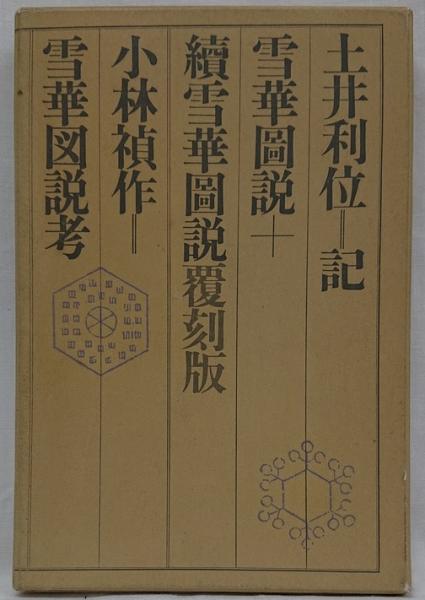 土井利位＝記
雪華圖説＋
續雪華圖説覆刻版
小林禎作＝
雪華図説考